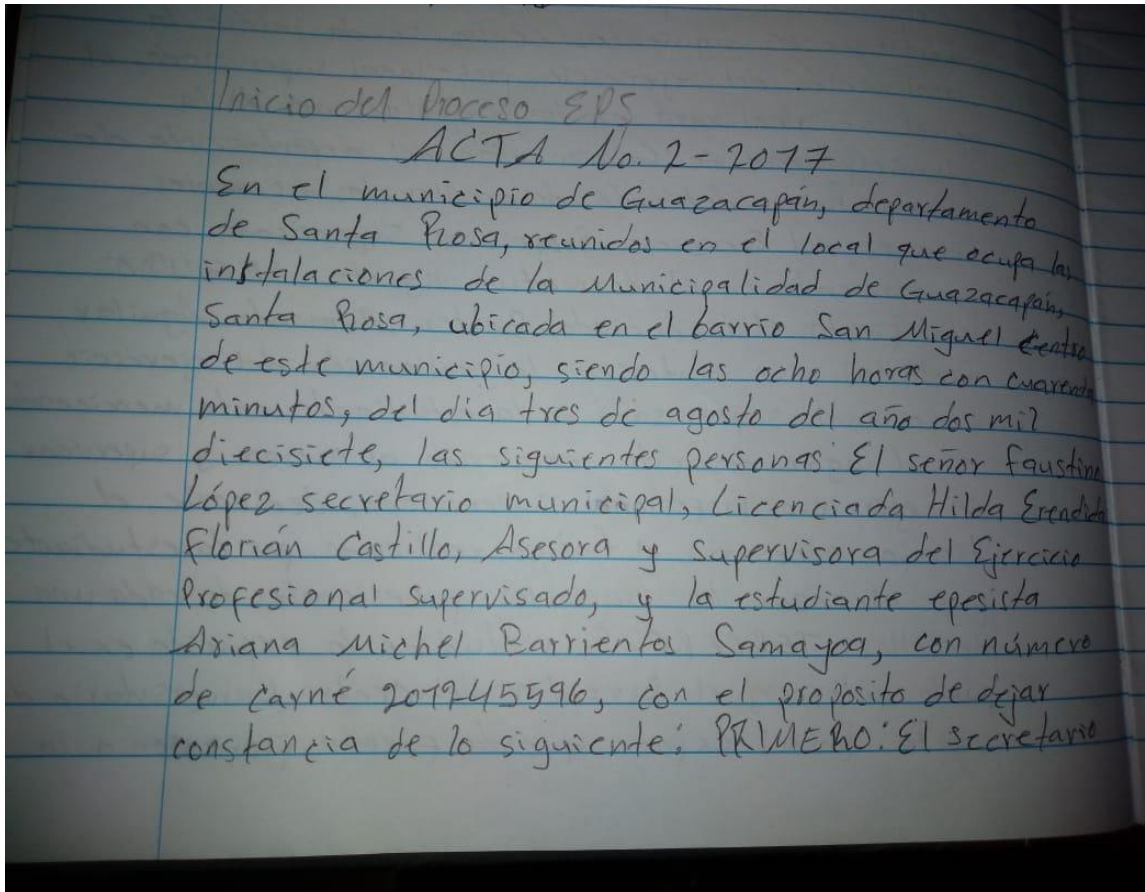 Inicio del Proceso EPS
ACTA No. 2-2017
En el municipio de Guazacapán, departamento
de Santa Rosa, reunidos en el local que ocupa las
instalaciones de la Municipalidad de Guazacapán,
Santa Rosa, ubicada en el barrio San Miguel Centro
de este municipio, siendo las ocho horas con cuarenta
minutos, del dia tres de agosto del año dos mil
diecisiete, las siguientes personas: El señor Faustino
López secretario municipal, Licenciada Hilda Erendida
Florián Castillo, Asesora y supervisora del Ejercicio
Profesional supervisado, y la estudiante epesista
Ariana Michel Barrientos Samayoa, con número
de carné 201245596, con el proposito de dejar
constancia de lo siguiente: PRIMERO: El secretario